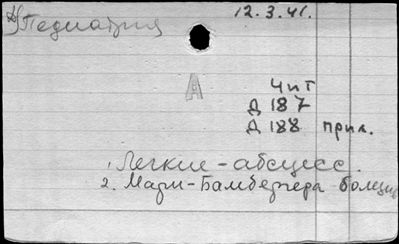 Педиатрия 12.3.41.
А
Чит
Д 187
Д 188 прил.
1. Легкие - абсцесс.
2. Мари-Бамбергера болезнь